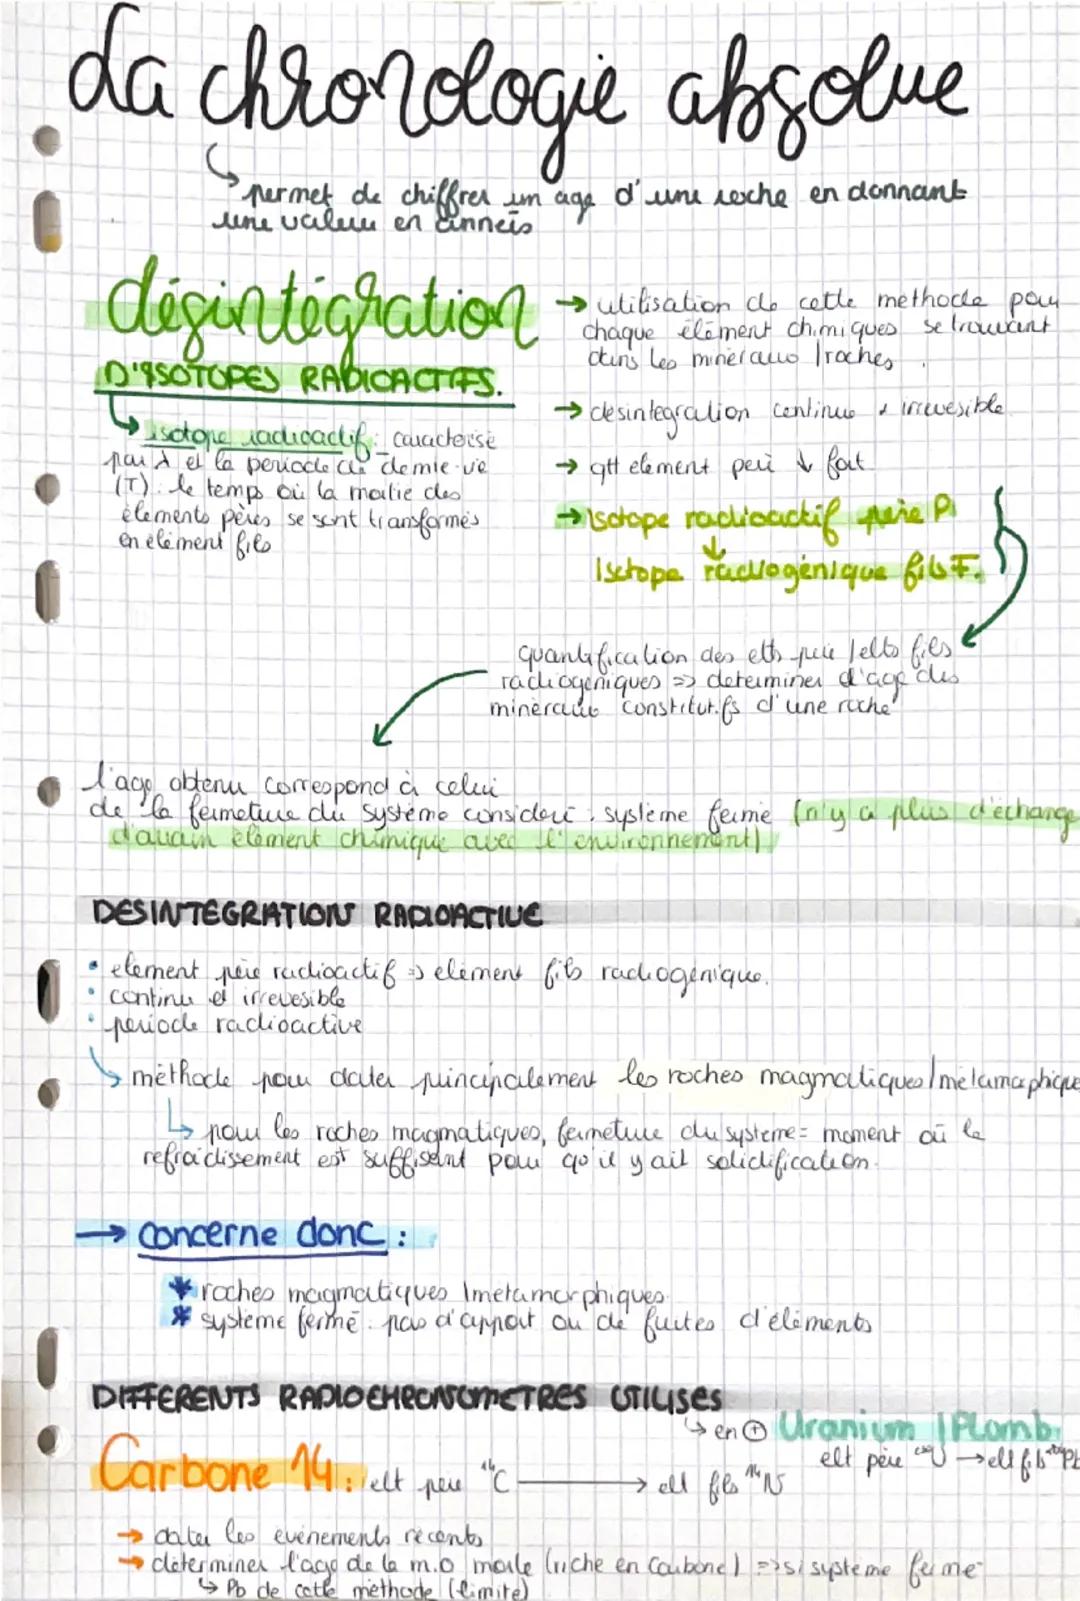 La chronologie absolue
↳ permet de chiffrer un age d'une roche en donnant
une valeur en années
désintégration
D'ISOTOPES RADIOACTIFS.
↳ isotope radioactif : caractérisé
par λ et la periode de demie-vie
(T) : le temps où la moitié des
élements pères se sont transformés
en element fils
→ utilisation de cette methode pour
chaque élément chimiques se trouvant
dans les minéraux / roches.
→ desintegration continue & irreversible
→ qtt element père ↓ fait
→ Isotope radioactif père P
↓
Isotope radiogénique fils F.
quantification des elts père / elts fils
radiogéniques => determiner l'age des
minéraux constitutifs d'une roche
l'age obtenu correspond à celui
de la fermeture du système consideré : système fermé (n'y a plus d'échange
d'aucun élément chimique avec l'environnement)
DESINTEGRATION RADIOACTIVE
• element père radioactif => element fils radiogénique.
• continu et irreversible
• periode radioactive
↳ méthode pour dater principalement les roches magmatiques / métamorphique
↳ pour les roches magmatiques, fermeture du systeme = moment où le
refroidissement est suffisant pour qu'il y ait solidification.
→ concerne donc :
* roches magmatiques / metamorphiques
* système fermé : pas d'apport ou de fuites d'éléments
DIFFERENTS RADIOCHRONOMETRES UTILISES
↳ en ⊕ Uranium / Plomb:
elt père U → elt fils Pb
Carbone 14 : elt père ¹⁴C → elt fils ¹⁴N
→ dater les evenements récents
→ déterminer l'age de la m.o morte (riche en Carbone) => si systeme fermé
↳ Pb de cette méthode (limite)